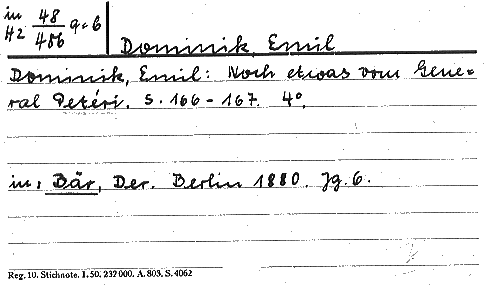 in 48 q=6
42 486
Dominik, Emil
Dominik, Emil: Noch etwas vom Gene=
ral Petéri. S. 166-167. 4°.
in: Bär, Der. Berlin 1880. Jg. 6.
Reg. 10. Stichnote. I. 50. 232000. A. 803. S. 4062